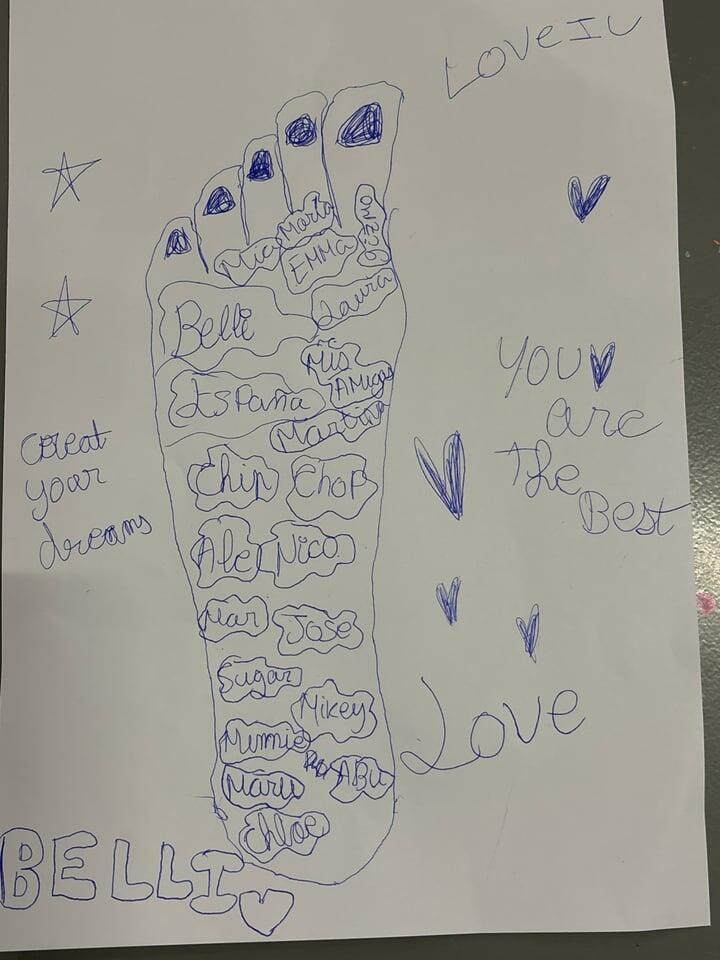 LOVE IU
Marta
Mia
EMMA
Laura
Belli
Mis
AMigas
ESPaña
Martina
YOU
are
The
Best
Creat
your
dreams
Chip
Chop
Ale
Nico
Mar
Jose
Sugar
Mikey
Minnie
Maru
ABU
Love
Chloe
BELLI